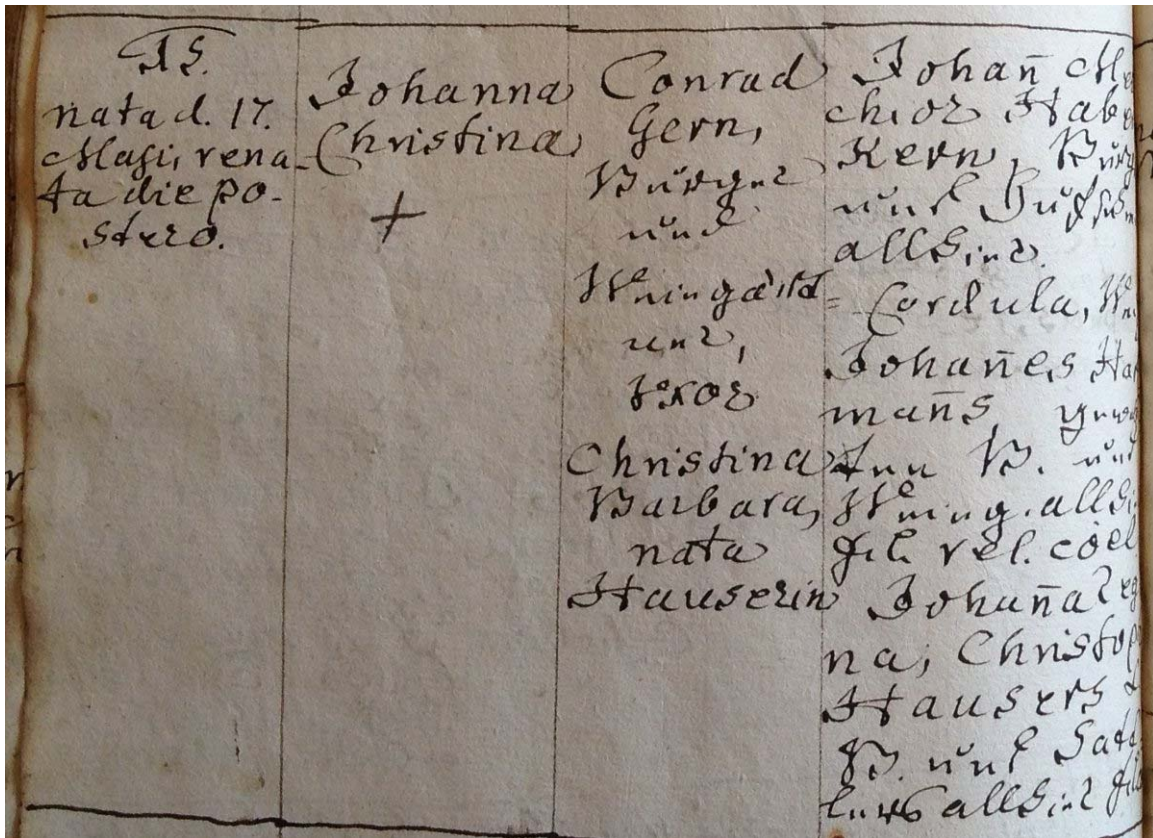 15.
nata d. 17.
Maji, rena-
ta die po-
stero.
Johanna
Christina
+
Conrad
Gern,
Burger
und
Weingärt=
ner,
Uxor
Christina
Barbara,
nata
Hauserin
Johañ Mel
chior Haber
Kern, Burg
und Hufschm
allhier.
Cordula, We
Johañes Har
mañs, gewes
B. und
Weing. allhi
fil. rel. coel
Johaña Reg
na, Christop
Hausers
B. und Satt
lers allhier fil